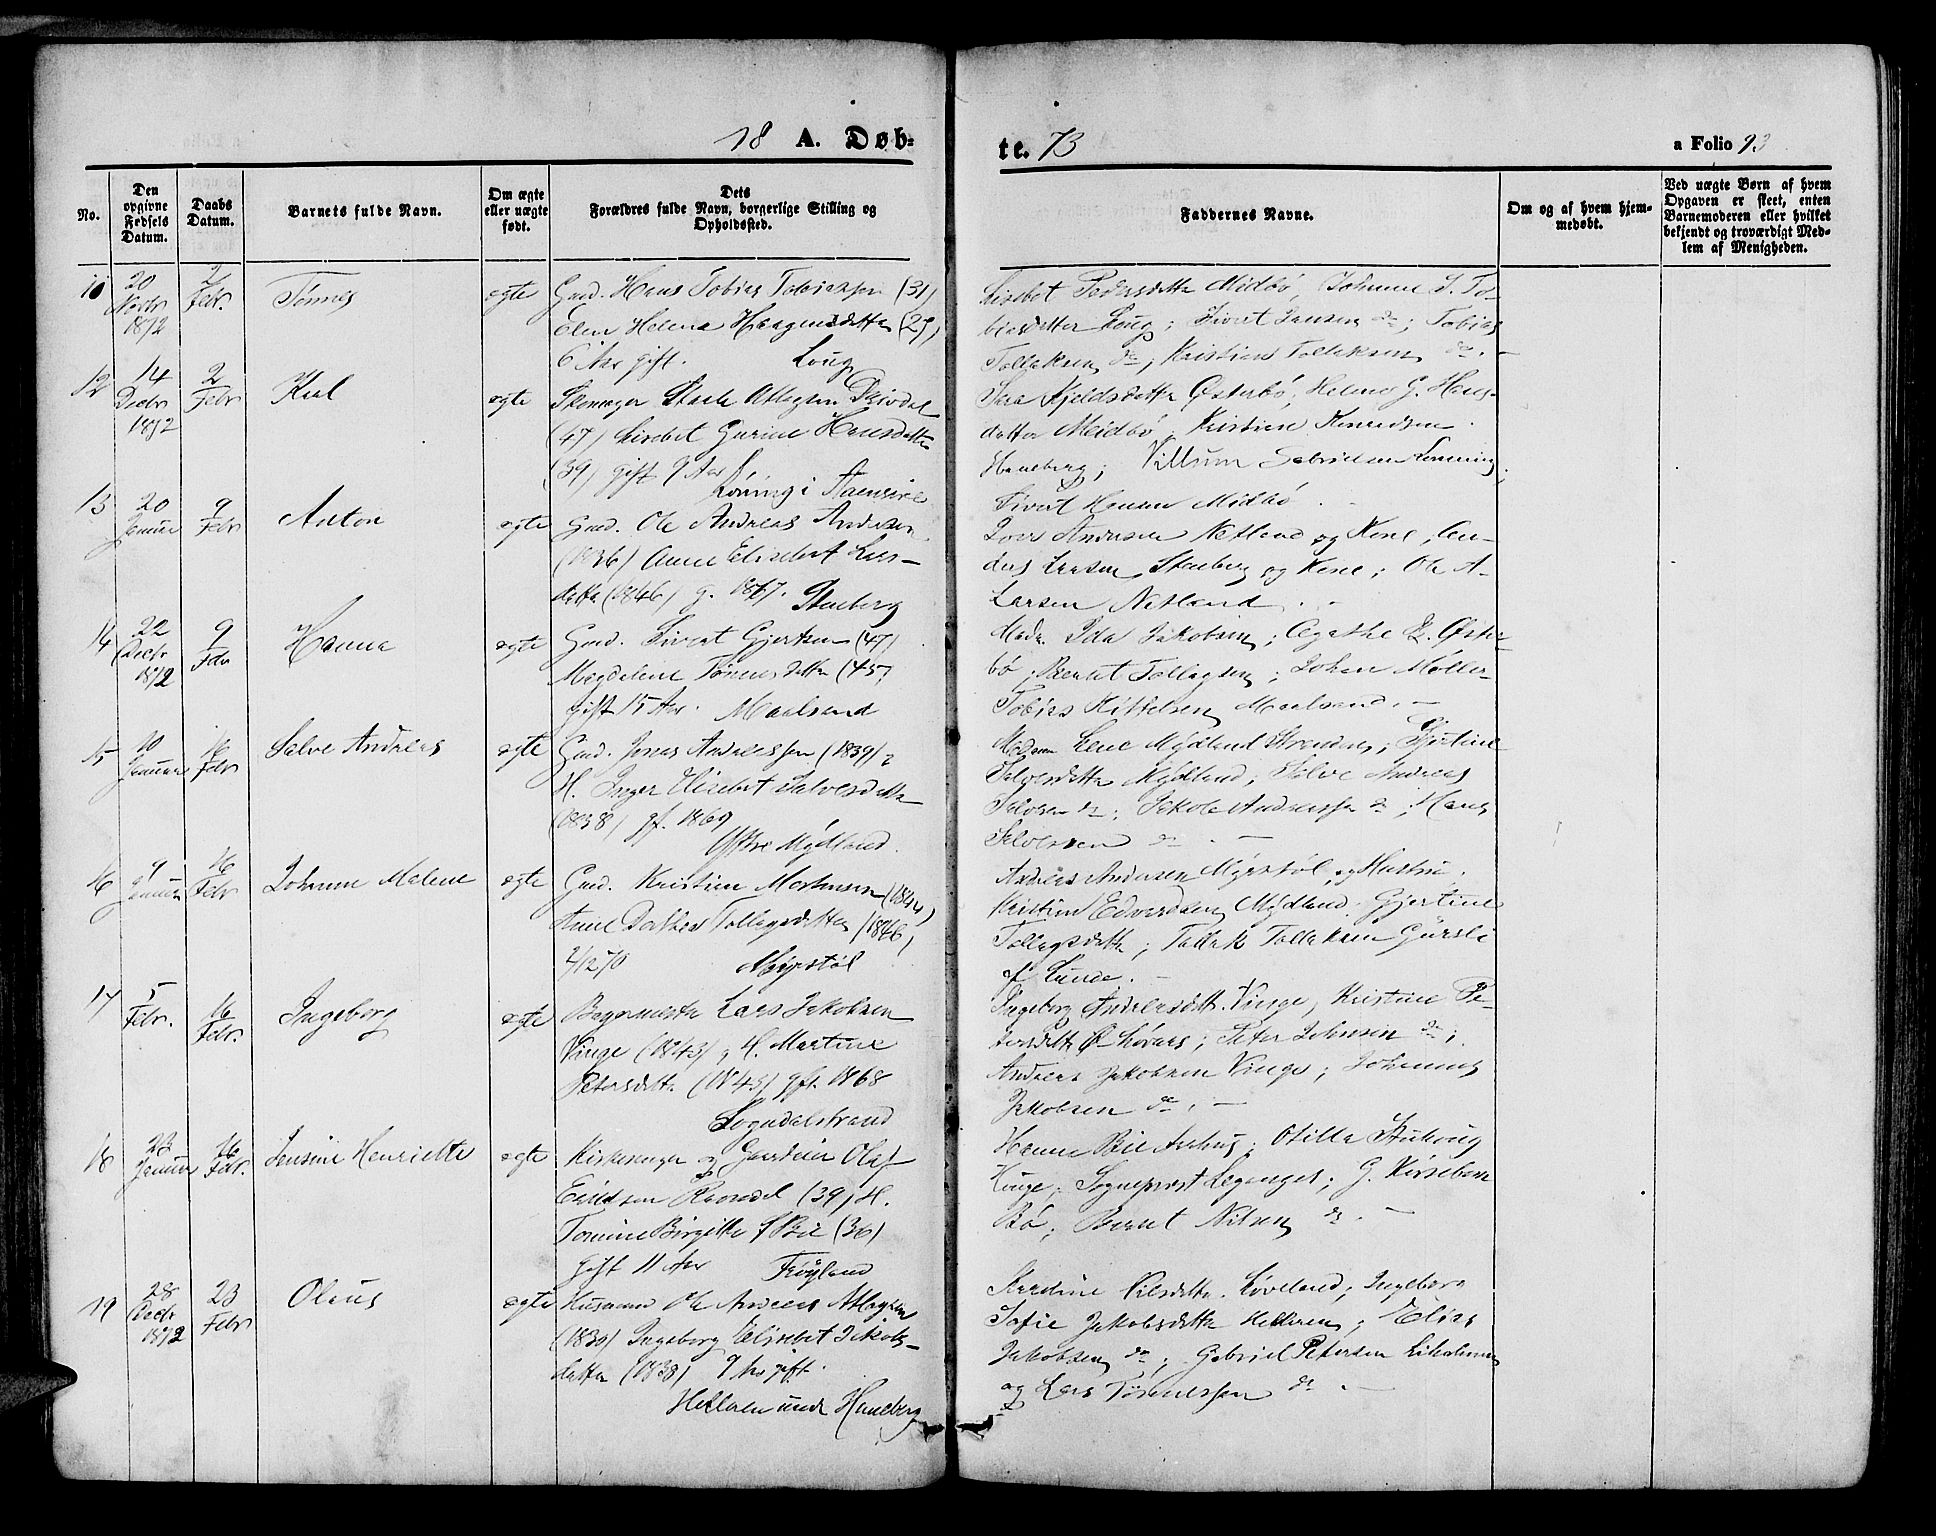 18 A. Døb=
te. 73
a Folio 93
No.
Den
opgivne
Fødsels
Datum.
Daabs
Datum.
Barnets fulde Navn.
Om ægte
eller uægte
født.
Dets
Forældres fulde Navn, borgerlige Stilling og
Opholdssted.
Faddernes Navne.
Om og af hvem hjem-
medøbt.
Ved uægte Børn af hvem
Opgaven er skeet, enten
Barnemoderen eller hvilket
bekjendt og troværdigt Med-
lem af Menigheden.
20
1872
2
Febr.
Tønnes
ægte
Gmd. Hans Tobias Tobiassen (31)
Elen Helene Haagensdatter (27)
6 Aar gift.
Lisebet Pedersdatter Midbø, Johanne T. To-
biasdatter ; Sivert Jansen do; Tobias
Tollaksen do; Kristian Tollaksen do. -
12
14
Decbr
1872
2
Febr
Karl
ægte
Atlagsen
(47) Lisebet Gurine Hansdatter
(39) gift 9 Aar
i Aaensire
Sara Kjeldsdatter Østerbø, Helene G. Hans-
datter Meidbø, Kristian Konradsen
Haneberg; Villum Gabrielsen
Sivert Hansen Midbø
13
20
Januar
9
Febr
Anton
ægte
Gmd. Ole Andreas Andersen
(1836) Anne Elisebet Lars-
datter (1846) g. 1867. Staeberg
Andersen Netland og Kone, An-
dreas Larsen Staeberg og Kone; Ole A.
Larsen Netland
14
22
Decbr
1872
9
Febr
Hanna
ægte
Gmd. Sivert Gjertsen (47)
Magdalene Tønnesdatter (45)
gift 15 Aar. Maalsund
Mada. Ida Jakobsen; Agathe Z. Øster-
bø; Berntet Tollagsen; Johan Møller
Tobias Kittelsen Maalsund. -
15
10
Januar
16
Febr
Salve Andreas
ægte
Gmd. Jonas Andreassen (1839) &
H. Inger Elisebet Salvesdatter
(1838) gf. 1869
Øvre Mydland.
Madam Lene Mydland Stranden; Gjertine
Salvesdatter Mydland; Salve Andreas
Salvesen do; Jakob Andreassen do; Hans
Salvesen do. -
16
9
Januar
16
Febr
Johanne Malene
ægte
Gmd. Kristian Mortensen (1844)
Anne Dorthea Tollagsdatter (1846)
2/12 70 Myrstøl
Andreas Andersen Myrstøl og Hustru.
Kristian Edvardsen Mydland. Gjertine
Tollagsdatter; Tallak Tallaksen Gursli
af Lunde. -
17
5
Febr.
16
Febr.
Ingeborg
ægte
Bagermester Lars Jakobsen
Vinge (1843) & H. Martine
Petersdatter (1845) gft. 1868
Sogndalstrand
Ingeborg Andreasdatter Vinge, Kristine Pe-
tersdatter ; Peter Johnsen do;
Andreas Jakobsen Vinge; Johannes
Jakobsen do. -
18
23
Januar
16
Febr.
Jensine Henriette
ægte
Kirkesanger og Gaardeier Olaf
Eivindsen Ravndal (39) H.
Tomine Birgitte f. Bie (36)
gift 11 Aar Frøyland
Hanne Bie ; Otilla
Hauge; Sogneprest Leganger; G. Kirsebom
Bø; Bernt Nilsen do. -
19
28
Decbr
1872
23
Febr
Olaus
ægte
Husmand Ole Andreas Atlagsen
(1830) Ingeborg Elisebet Jakobs-
datter (1838) 9 Aar gift.
Helleren under Haneberg
Karoline Nilsdatter Løveland; Ingeborg
Sofie Jakobsdatter Helleren; Elias
Jakobsen do; Gabriel Petersen
og Lars Tønnessen do. -